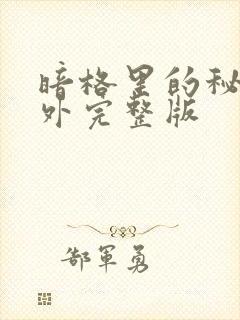 暗格里的秘
外完整版
郜軍勇